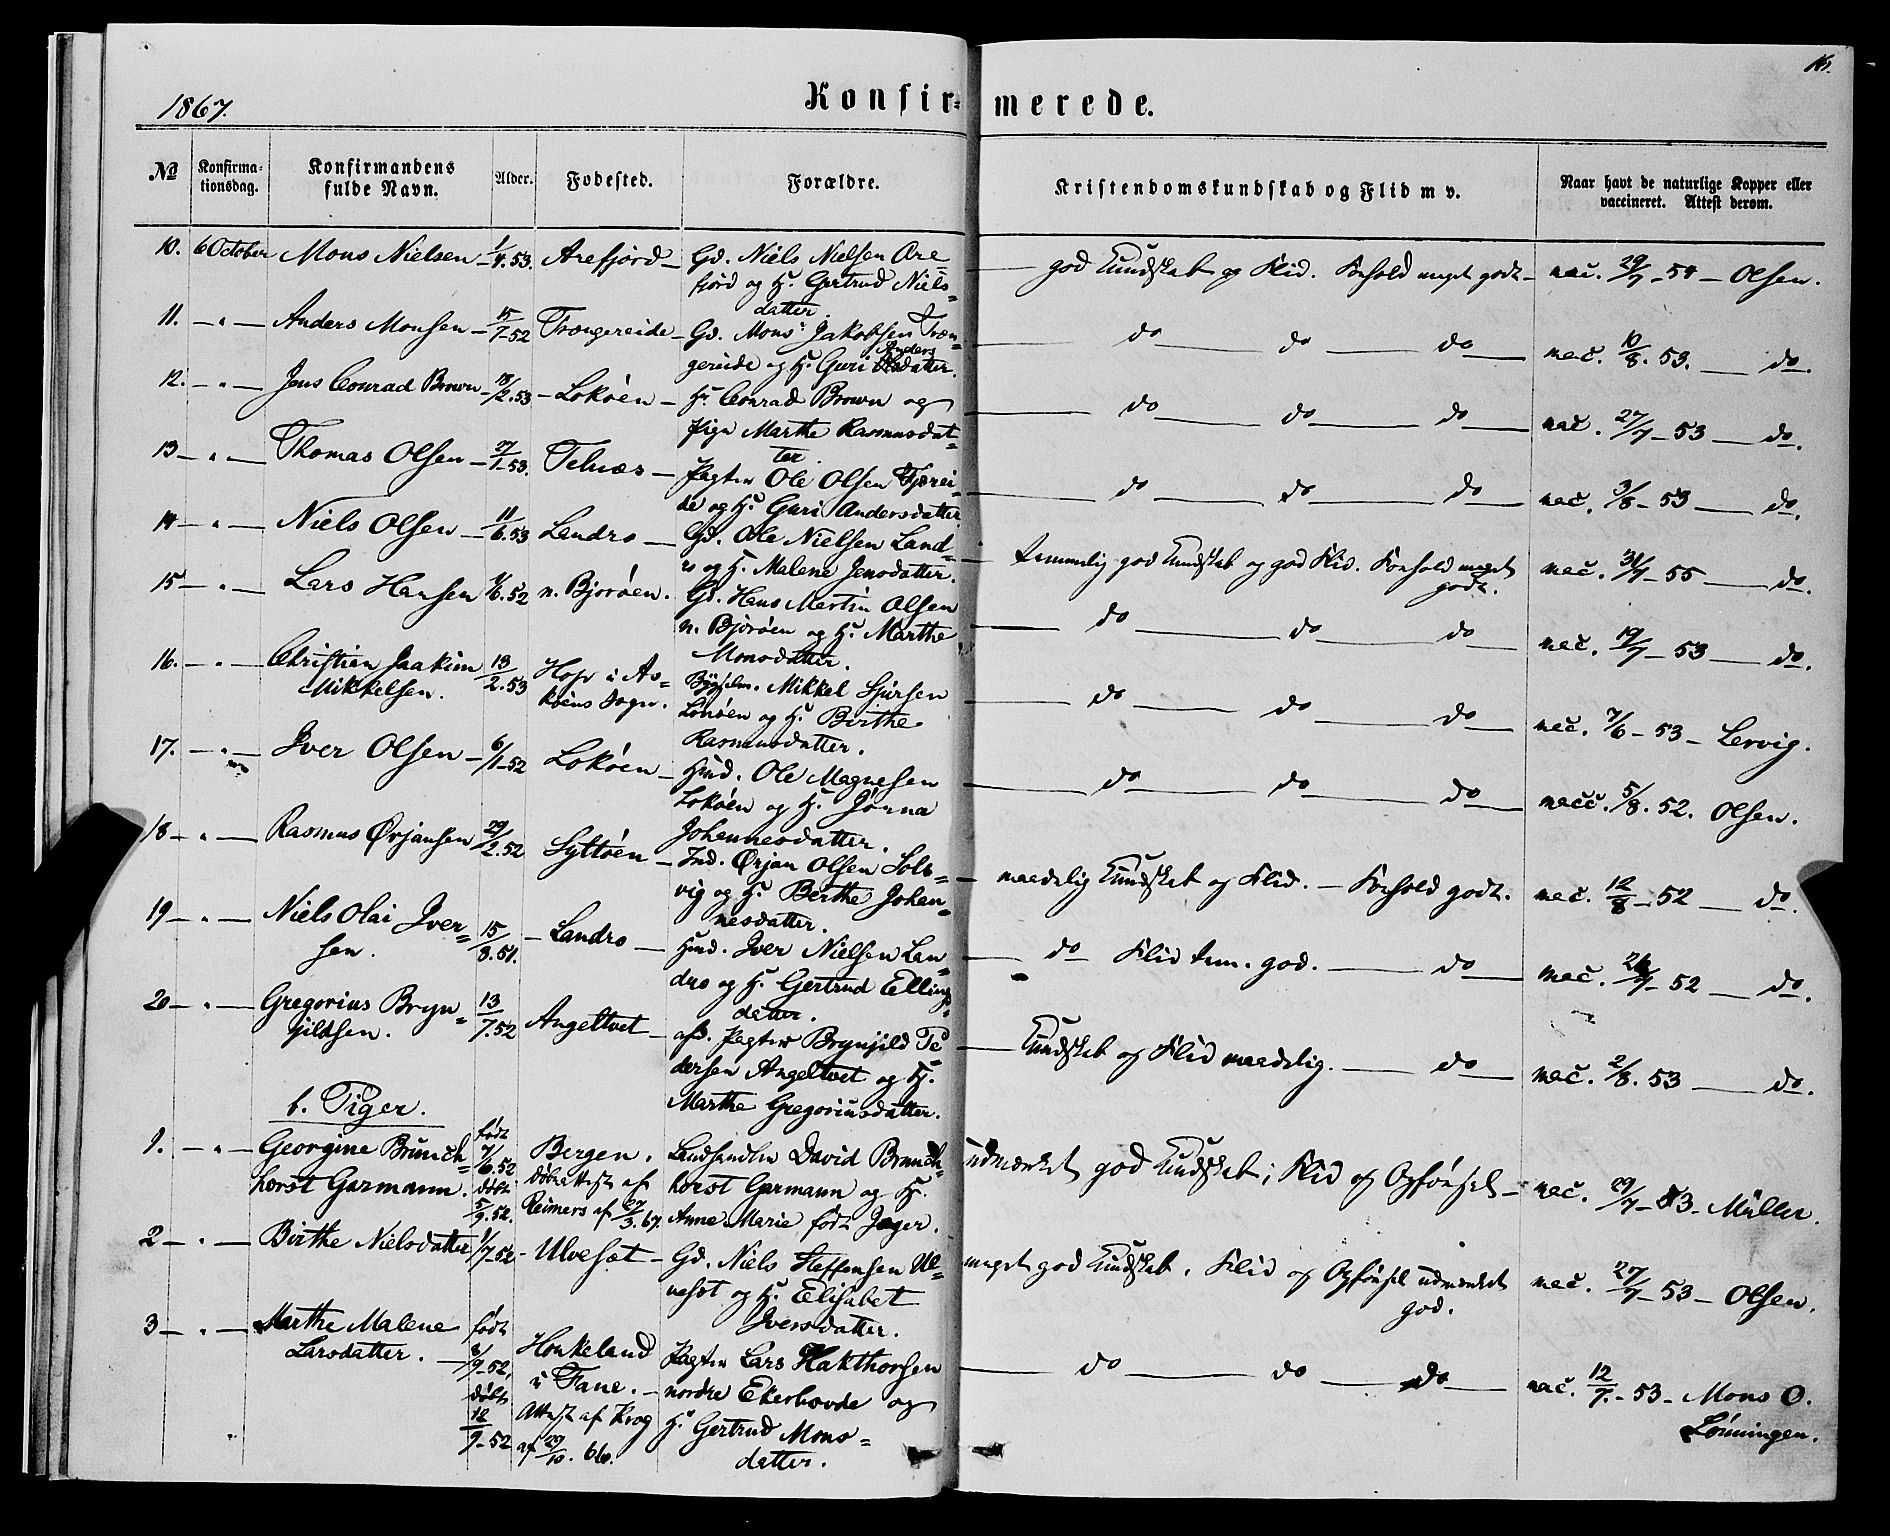 1867.
Konfir-
merede.
16.
№
Konfirma-
tionsdag.
Konfirmandens
fulde Navn.
Alder.
Fødested.
Forældre.
Kristendomskundskab og Flid m v.
Naar havt de naturlige Kopper eller
vaccineret. Attest derom.
10. 6 October Mons Nielsen - 1/4.53. Arefjord - Gd. Niels Nielsen Are
fjord og H. Gertrud Niels-
datter.
god Kundskab og Flid. Forhold meget godt - vac. 29/7 - 54 - Olsen.
11. - " - Anders Monsen - 15/7-52 Trængereide - Gd. Mons Jakobsen Træn-
gereide og H. Guri Anders
datter.
do do do vac. 10/8. 53. do.
12. - " - Jens Conrad Brown - 18/2.53 - Lokøen - Hr Conrad Brown og
Pige Marthe Rasmusdat-
ter.
do do do vac. 27/7 - 53 - do.
13 - " - Thomas Olsen - 27/1.53. Telnæs - Pagter Ole Olsen Fjærei-
de og H. Guri Andersdatter
do do do vac. 3/8 - 53 - do.
14 - " - Niels Olsen - 11/6.53 Landro - Gd. Ole Nielsen Land-
ro og H. Malene Jensdatter.
temmelig god Kundskab og god Flid. Forhold meget
godt. vac. 31/7 - 55 - do.
15 - " - Lars Hansen 6.52 n. Bjorøen. Gd. Hans Martin Olsen
n. Bjorøen og H. Marthe
Monsdatter.
do do do vac. 19/7 - 53 - do.
16. - " - Christian Joakim
Mikkelsen. 13/2.53 Hop i As-
køens Sogn. Bygselm. Mikkel Sjursen
Lonøen og H. Birthe
Rasmusdatter.
do do do vac. 7/6 - 53 - Lervig.
17. - " - Iver Olsen - 6/1-52 Lokøen - Huusd. Ole Magnesen
Lokøen og H. Jørna
Johannesdatter.
do do do vacc. 5/8. 52. Olsen.
18 - " - Rasmus Ørjansen 29/2.52 Syltøen - Ind. Ørjan Olsen Sols-
vig og H. Berthe Johan-
nesdatter.
maadelig Kundskab og Flid. - Forhold godt. vac. 12/8 - 52 - do.
19 - " - Niels Olai Iver-
sen. 15/8.51. - Landro - Huusd. Iver Nielsen Lan-
dro og H. Gertrud Ellings-
datter.
do Flid tem. god. do vac. 26/7 - 52 - do.
20 - " - Gregorius Bryn-
jildsen. 13/7.52 Angeltvet - afd. Pagter Brynjild Pe-
dersen Angeltvet og H.
Marthe Gregoriusdatter.
Kundskab og Flid maadelig. do vac. 2/8. 53 - do.
b. Piger.
1. - " - Georgine Brunch-
horst Garmann. født
7/6.52.
døbt
5/9.52. Bergen.
Døbeattest af
Reimers af 27/3.67. Landhandler David Brunch-
horst Garmann og H.
Anne Marie født Jager.
udmærket god Kundskab; Flid og Opførsel - vac. 29/7 - 53 - Müller.
2 - " - Birthe Nielsdatter 1/7-52 - Ulvesæt - Gd. Niels Steffensen Ul-
vesæt og H. Elisabet
Iversdatter.
meget god Kundskab, Flid og Opførsel udmærket
god. vac. 27/7 - 53 - Olsen.
3 - " - Marthe Malene
Larsdatter. - født
8/9-52,
døbt
12/9-52 Haukeland
i Fane. -
Attest af Krog
af 29/10. 66. Pagter Lars Hakthorsen
nordre Ekerhovde og
H. Gertrud Mons-
datter.
do do do vac. 12/7. - 53 - Mons O.
Lønningen.